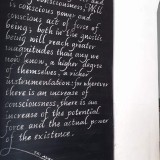 is conscious power and
conscious act of force of
being; both in the gnostic
being will reach greater
magnitudes than any we
now know, a higher degree
of themselves, a richer
instrumentation: for wherever
there is an increase of
consciousness, there is an
increase of the potential
force and the actual power
of the existence.